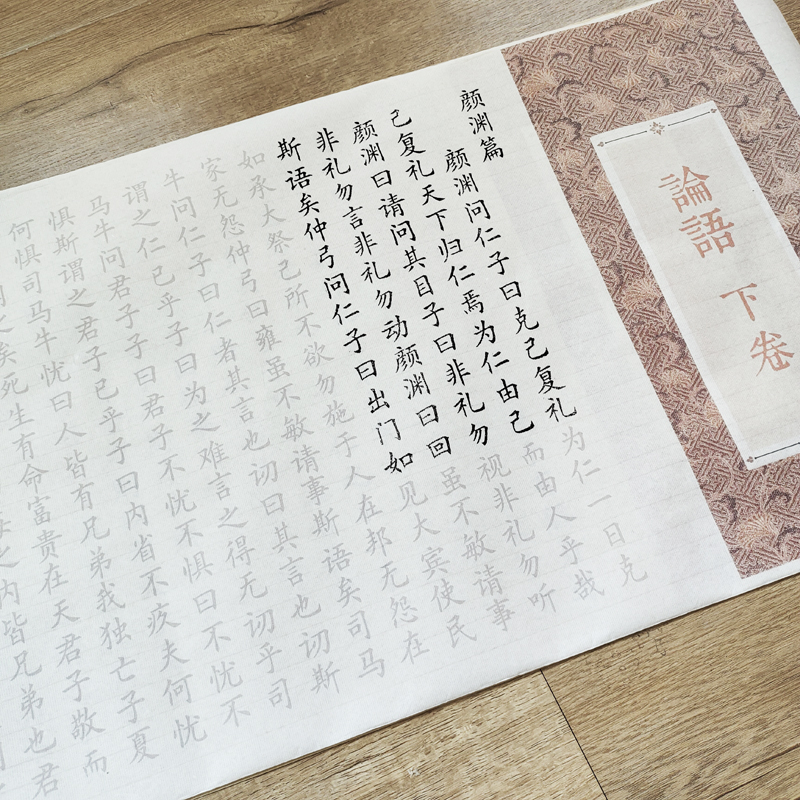 論語 下卷
颜渊篇
颜渊问仁子曰克己复礼为仁一日克
己复礼天下归仁焉为仁由己而由人乎哉
颜渊曰请问其目子曰非礼勿视非礼勿听
非礼勿言非礼勿动颜渊曰回虽不敏请事
斯语矣仲弓问仁子曰出门如见大宾使民
如承大祭己所不欲勿施于人在邦无怨在
家无怨仲弓曰雍虽不敏请事斯语矣司马
牛问仁子曰仁者其言也讱曰其言也讱斯
谓之仁已乎子曰为之难言之得无讱乎司
马牛问君子子曰君子不忧不惧曰不忧不
惧斯谓之君子已乎子曰内省不疚夫何忧
何惧司马牛忧曰人皆有兄弟我独亡子夏
之矣死生有命富贵在天君子敬而
之内皆兄弟也君